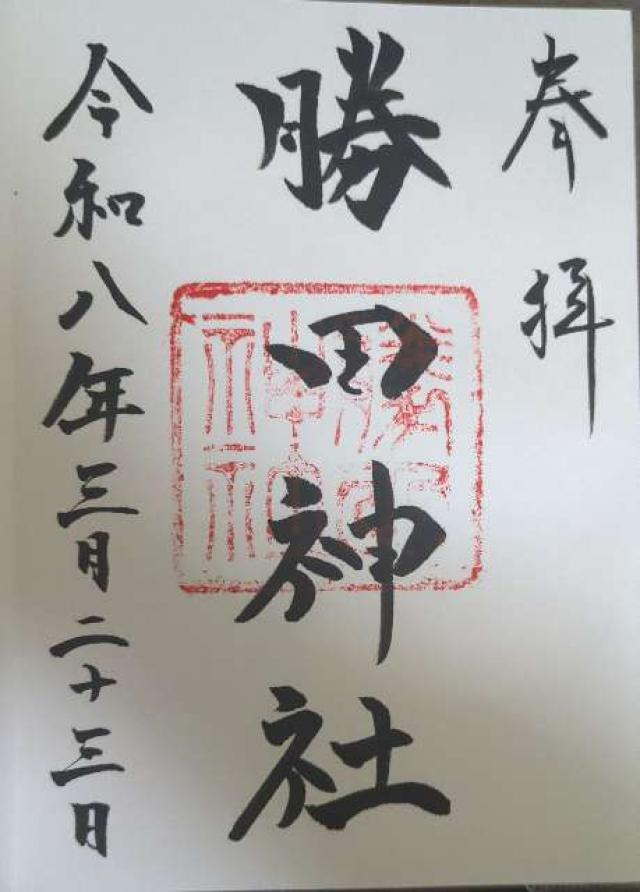 奉拝
勝田神社
令和八年三月二十三日